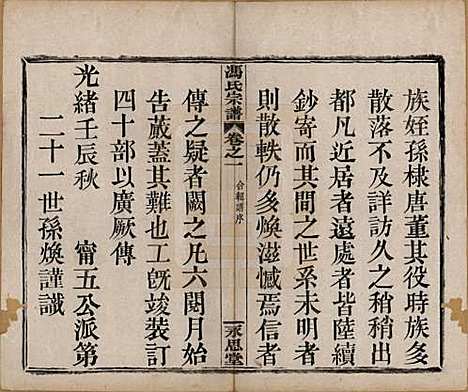 族姪孫棣唐董其役時族多
散落不及詳訪久之稍稍出
都凡近居者遠處者皆陸續
鈔寄而其間之世系未明者
則散軼仍多煥滋憾焉信者
馮氏宗譜
卷之一
合輯譜序
永思堂
傳之疑者闕之凡六閱月始
告蕆蓋其難也工旣竣裝訂
四十部以廣厥傳
光緒壬辰秋 甯五公派第
二十一世孫煥謹識